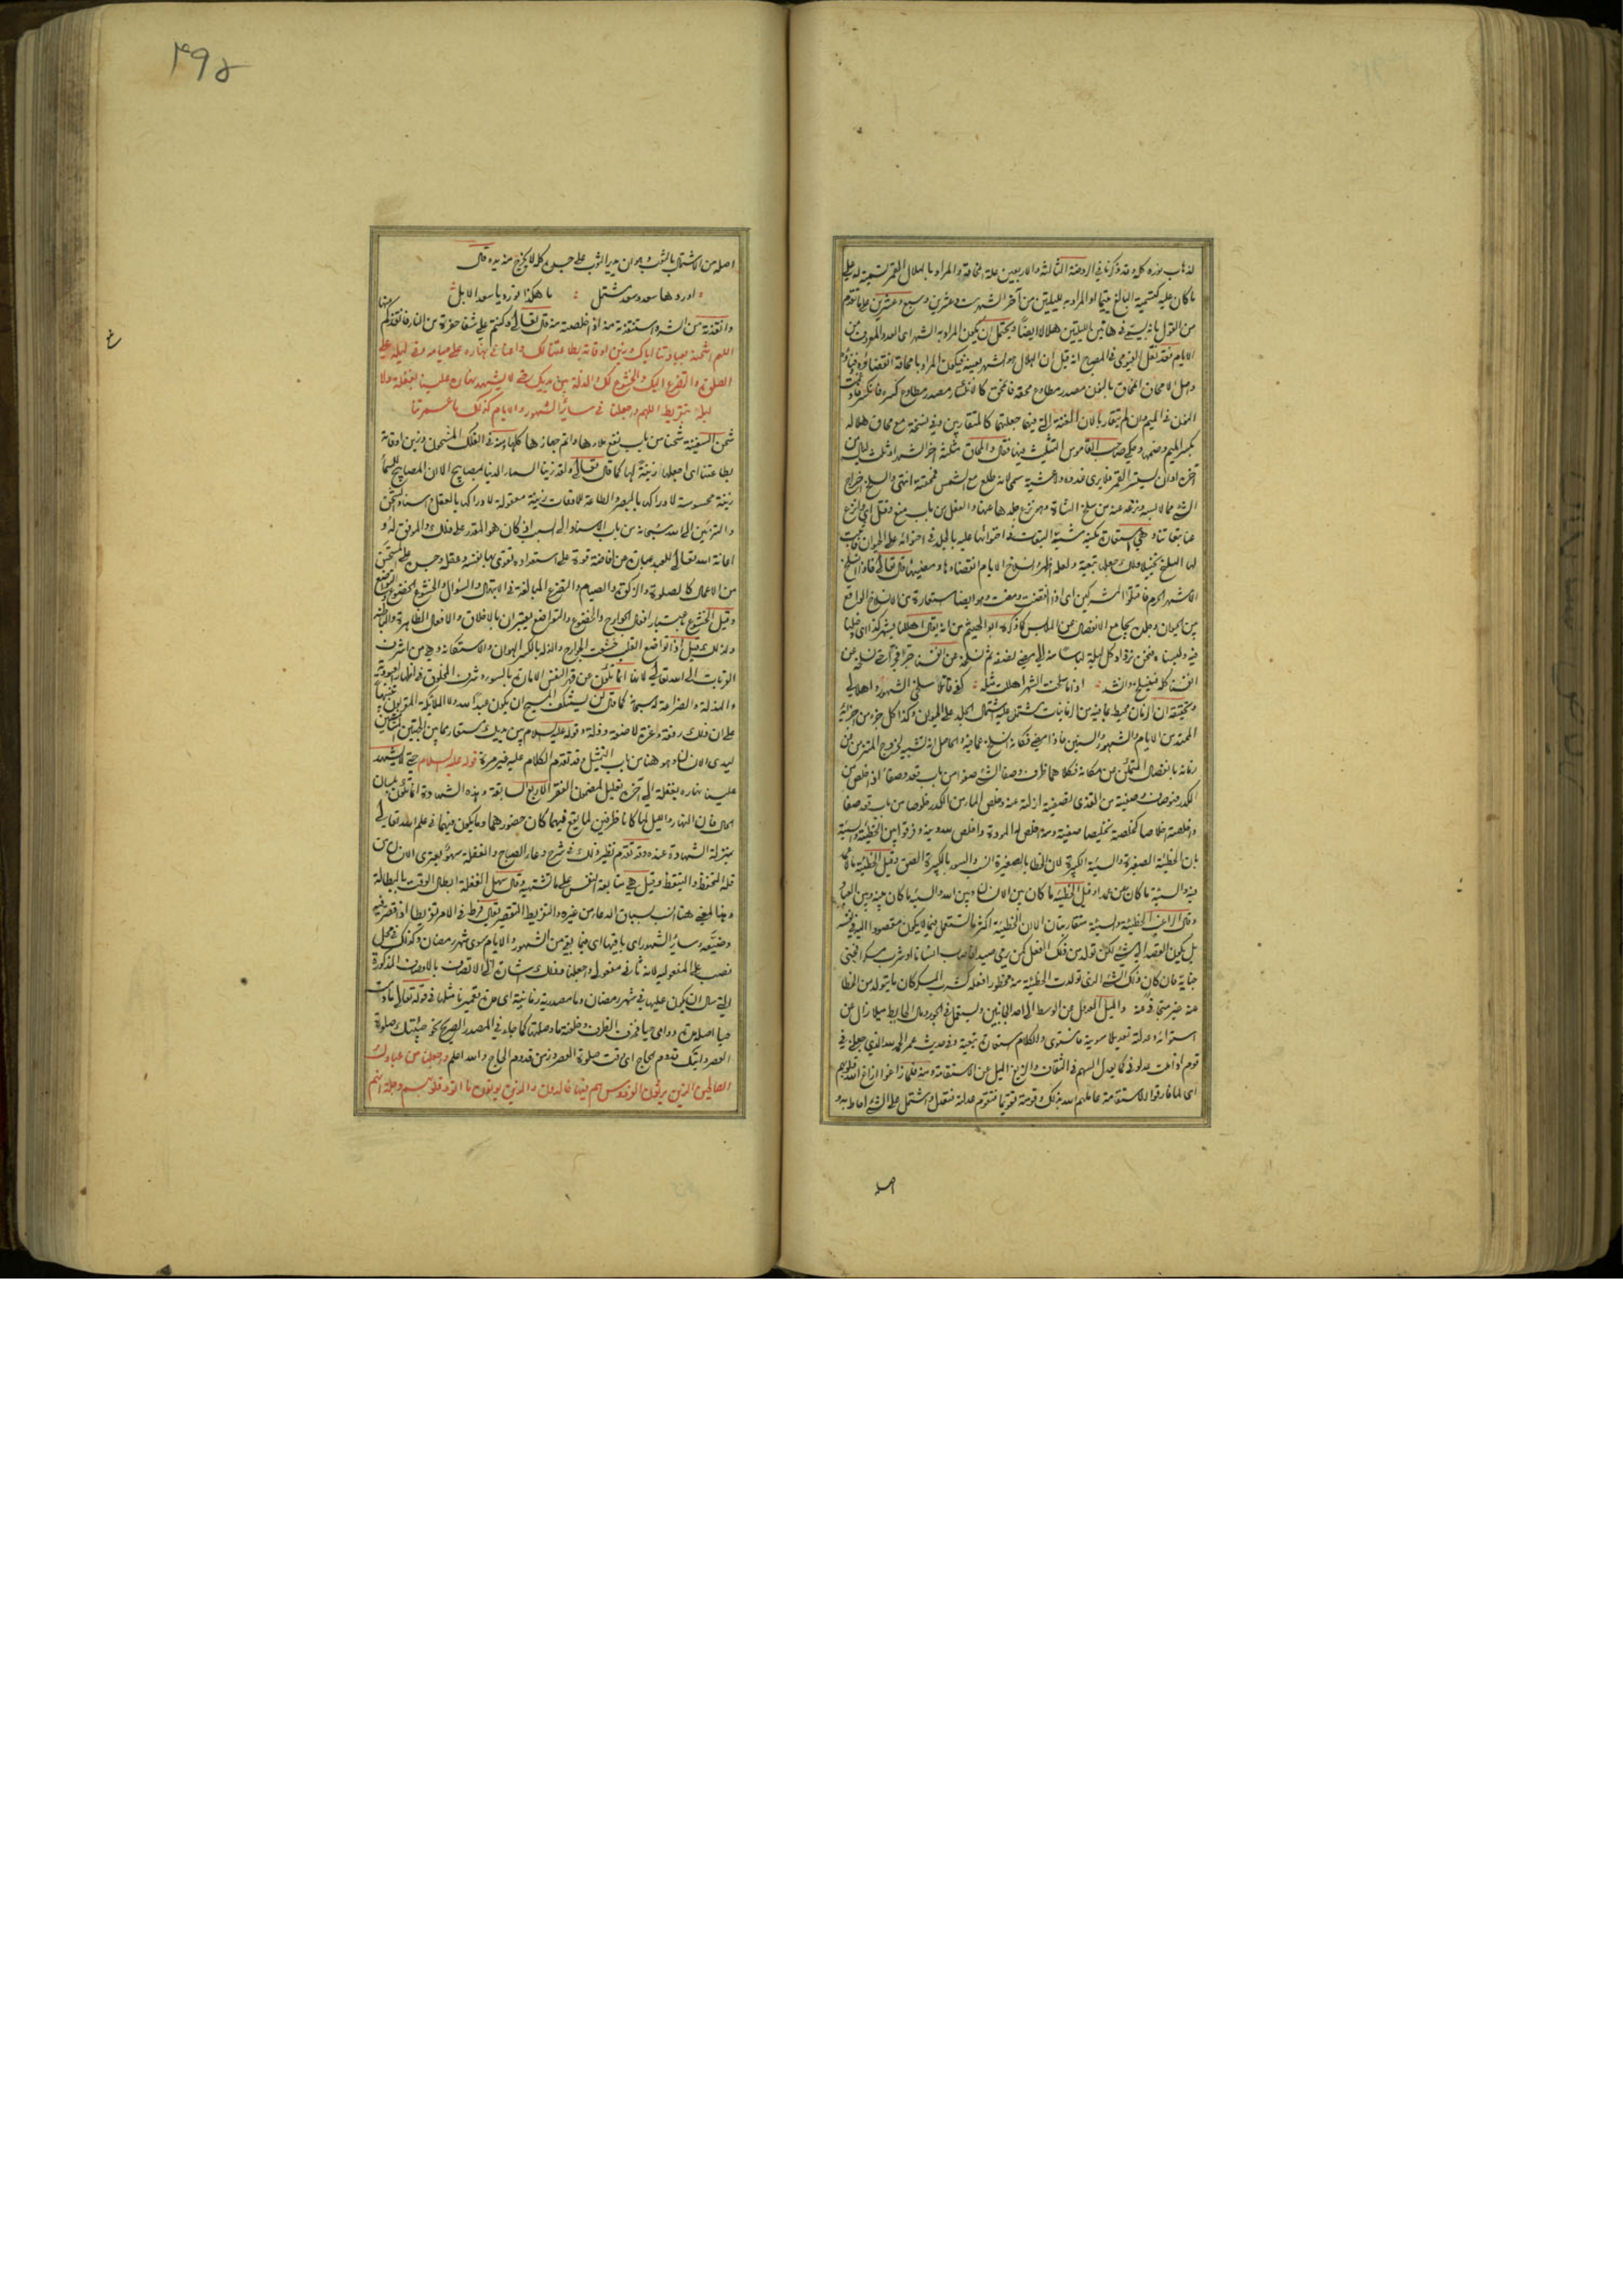 لذهاب نوره كله وقد ذكرنا في الروضة الثالثة والاربعين علة المحاق والمراد بالهلال القمر تسمية له على
ما كان عليه كتسمية البالغ يتيما او المراد به لليلتين من آخر الشهر ست وعشرين وسبع وعشرين على ما تقدم
من القول بانه يسمى في هاتين الليلتين هلالا ايضا ويحتمل ان يكون المراد به الشهر اى العدد المعروف من
الايام فقد نقل الفيومى في المصباح انه قيل ان الهلال هو الشهر بعينه فيكون المراد بامحاقه انقضاؤه وفناؤه
واصل الامحاق انمحاق بالنون مصدر مطاوع محقه فانمحق كالانكسار مصدر مطاوع كسره فانكسر فادغمت
النون في الميم وان لم يتقاربا لان الغنة التى فيها جعلتهما كالمتقاربين وفي نسخة مع محاق هلاله
بكسر الميم وضمها وحكى صاحب القاموس التثليث فيها فقال والمحاق مثلثة اخر الشهر او ثلث ليال من
آخره او ان يستتر القمر فلا يرى غدوة ولا عشية سمى لانه طلع مع الشمس فمحقته انتهى والسلخ اخراج
الشئ مما لابسه ونزعه عنه من سلخ الشاة وهو نزع جلدها عنها والفعل من باب منع وقتل اى وانزع
عنا تبعاتنا وهى استعارة مكنية شبه التبعات في احتوائها عليه بالجلد في احتوائه على الحيوان فاثبت
لها السلخ تخييلا ولك جعلها تبعية ولعله اظهر وانسلاخ الايام انقضاءها ومضيها قال تعالى فاذا انسلخ
الاشهر الحرم فاقتلوا المشركين اى اذا انقضت ومضت وهو ايضا استعارة من الانسلاخ الواقع
بين الحيوان وجلده بجامع الانفصال عن الملابس كما ذكره ابو الهيثم من انه يقال اهللنا شهر كذا اى دخلنا
فيه ولبسناه فنحن نزداد كل ليلة لباسا منه الى مضى نصفه ثم نسلخه عن انفسنا جزءا فجزءا حتى نسلخه من
انفسنا كله فينسلخ وانشد : اذا ما سلخت الشهر اهللت مثله : كفى قاتلا سلخى الشهور واهلالى
وتحقيقه ان الزمان محيط بما فيه من الزمانيات مشتمل عليه اشتمال الجلد على الحيوان وكذا كل جزء من اجزائه
الممتدة من الايام والشهور والسنين فاذا مضى فكانه انسلخ عما فيه والحاصل انه تشبيه لخروج المتزمن من
زمانه بانفصال المتمكن عن مكانه فكلاهما ظرف وصفا الشئ صفوا من باب قعد وصفاء اذا خلص من
الكدر فهو صاف وصفيته من القذى تصفية ازلته عنه وخلص الماء من الكدر خلوصا من باب قعد صفا
واخلصته اخلاصا كخلصته تخليصا صفيته ومنه اخلص له المودة واخلص لله دينه وفرقوا بين الخطيئة والسيئة
بان الخطيئة الصغيرة والسيئة الكبيرة لان الخطا بالصغيرة انسب والسوء بالكبيرة الصق وقيل الخطيئة ما لا عمد
فيه والسيئة ما كان عن عمد وقيل الخطيئة ما كان بين الانسان وبين الله والسيئة ما كان بينه وبين العباد
وقال الراغب الخطيئة والسيئة متقاربتان الا ان الخطيئة اكثر ما تستعمل فيما لا يكون مقصودا اليه في نفسه
بل يكون القصد الى شئ لكن تولد من ذلك الفعل كمن يرمى صيدا فاصاب انسانا او شرب مسكرا فجنى
جناية فان كان ذلك الشئ الذى تولدت الخطيئة منه محظورا فعله كشرب المسكر كان ما يتولد من الخطا
عنه غير متجاف عنه والميل العدول عن الوسط الى احد الجانبين ويستعمل في الجور ومال الحائط ميلا زال عن
استوائه وعدلته تعديلا سويته فاستوى والكلام استعارة تبعية وفي حديث عمر الحمد لله الذى جعلنى في
قوم اذا ملت عدلونى كما يعدل السهم في الثقاف والزيغ الميل عن الاستقامة ومنه فلما زاغوا ازاغ الله قلوبهم
اى لما فارقوا الاستقامة عاملهم الله بذلك وقومته تقويما فتقوم عدلته فتعدل واشتمل على الشئ احاط به و
اصله
٤٩٥
اصله من الاشتمال بالثوب وهو ان يدير الثوب على جسده كله لا يخرج منه يده قال
: اوردها سعد وسعد مشتمل : ما هكذا تورد يا سعد الابل
وانقذته من الشر واستنقذته منه اذا خلصته منه قال تعالى وكنتم على شفا حفرة من النار فانقذكم منها
اللهم اشحنه بعبادتنا اياك وزين اوقاته بطاعتنا لك واعنا في نهاره على صيامه وفي ليله على
الصلوة والتضرع اليك والخشوع لك والذلة بين يديك حتى لا يشهد نهاره علينا بغفلة ولا
ليله بتفريط اللهم واجعلنا في سائر الشهور والايام كذلك ما عمرتنا
شحن السفينة شحنا من باب نفع ملاءها واتم جهازها كلها ومنه في الفلك المشحون وزين اوقاته
بطاعتنا اى اجعلها زينة لها كما قال تعالى ولقد زينا السماء الدنيا بمصابيح الا ان المصابيح للسماء
زينة محسوسة لادراكها بالبصر والطاعة للاوقات زينة معقولة لادراكها بالعقل واسناد الشحن
والتزيين الى الله سبحانه من باب الاسناد الى السبب اذ كان هو المقدر على ذلك والموفق له و
اعانة الله تعالى للعبد عبارة عن افاضة قوة على استعداده تقوى بها نفسه وعقله وحسن على تحسن
من الاعمال كالصلوة والزكوة والصيام والتضرع المبالغة في الابتهال والسؤال والخشوع الخضوع والتواضع
وقيل الخشوع باعتبار افعال الجوارح والخضوع والتواضع يعتبران بالاخلاق والافعال الظاهرة والباطنة
ولذلك قيل اذا تواضع القلب خشعت الجوارح والذلة بالكسر الهوان والاستكانة وهى من اشرف
القربات الى الله تعالى لانها انما تكون عن قهر النفس الامارة بالسوء وشرف المخلوق في اظهار العبودية
والمذلة والضراعة له سبحانه كما قال لن يستنكف المسيح ان يكون عبدا لله ولا الملائكة المقربون تنبيها
على ان ذلك رفعة وعزة لا ضعة وذلة وقوله عليه السلام بين يديك مستعار مما بين الجهتين المسامتتين
ليدى الانسان وهو هنا من باب التمثيل وقد تقدم الكلام عليه غير مرة قوله عليه السلام حتى لا يشهد
علينا نهاره بغفلة الى آخره تعليل لمضمون الفقر الاربع السابقة وهذه الشهادة اما تكون بلسان
الحال فان النهار والليل لما كانا ظرفين لما يقع فيهما كان حضورهما وما يكون فيهما في علم الله تعالى
بمنزلة الشهادة عنده وقد تقدم نظير ذلك في شرح دعاء الصباح والغفلة سهو يعترى الانسان من
قلة التحفظ والتيقظ وقيل هى متابعة النفس على ما تشتهيه وقال سهل الغفلة ابطال الوقت بالبطالة
وهذا المعنى هنا انسب بسياق الدعاء من غيره والتفريط التقصير يقال فرط في الامر تفريطا اذا قصر فيه
وضيعه وسائر الشهور اى باقيها اى فيما بقى من الشهور والايام سوى شهر رمضان وكذلك في محل
نصب على المفعولية لانه ثانى مفعولى اجعلنا وذلك اشارة الى الاتصاف بالاوصاف المذكورة
التى سال ان يكون عليها في شهر رمضان وما مصدرية زمانية اى مدة تعميرنا مثلها في قوله تعالى ما دمت
حيا اصله مدة دوامى حيا فحذف الظرف وخلفته ما وصلتها كما جاء في المصدر الصريح نحو جئتك صلوة
العصر واتيك قدوم الحاج اى وقت صلوة العصر وزمن قدوم الحاج والله اعلم واجعلنا من عبادك
الصالحين الذين يرثون الفردوس هم فيها خالدون والذين يؤتون ما اتوا وقلوبهم وجلة انهم